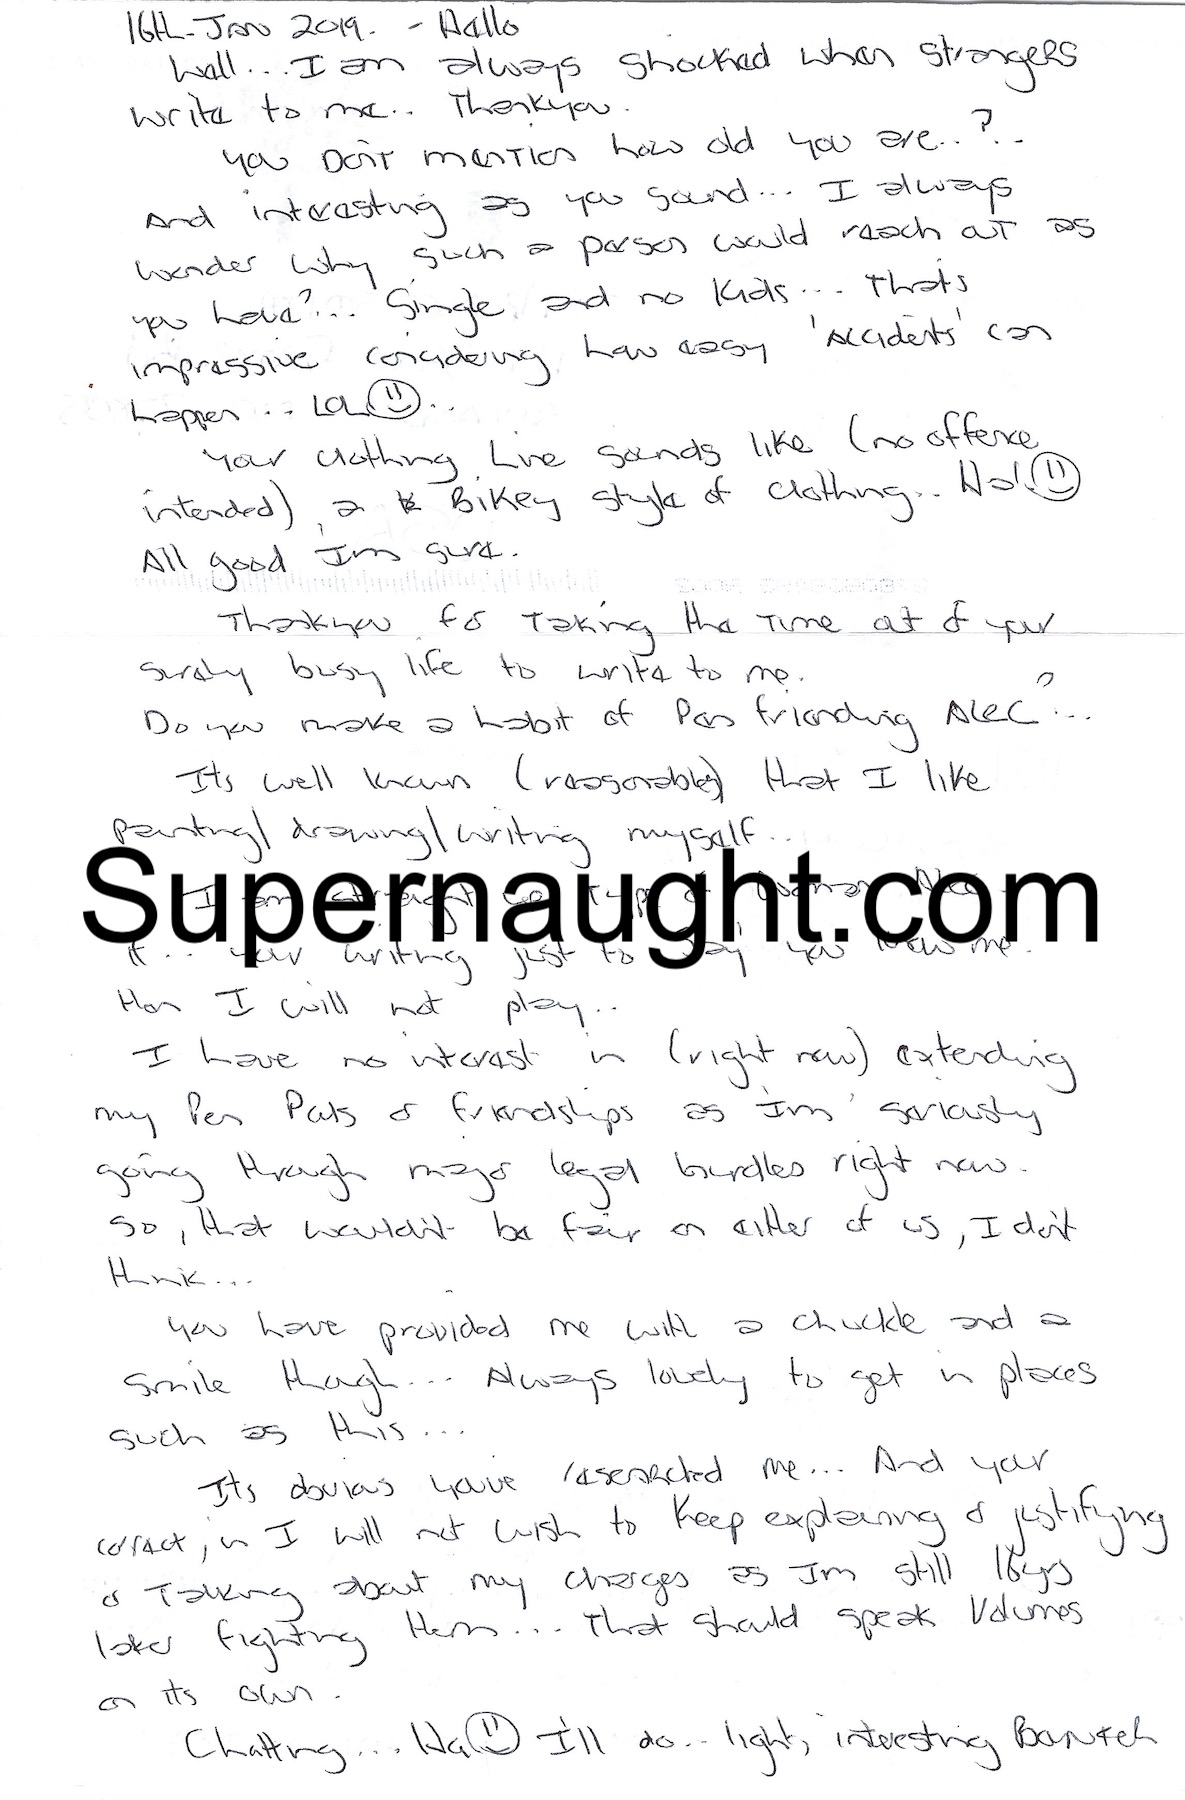 16th-Jan 2019. - Hello
Well... I am always shocked when strangers
write to me.. Thankyou.
You DON'T mention how old you are..?..
And interesting as you sound... I always
wonder why such a person would reach out as
you have?... Single and no kids... Thats
impressive considering how easy 'accidents' can
happen... LOL..
Your clothing Line sounds like (no offence
intended), a Bikey style of clothing.. Ha!
All good I'm sure.
Thankyou for Taking the Time out of your
surely busy life to write to me.
Do you make a habit of Pen friending Alec?...
Its well known (reasonably) that I like
painting/ drawing/ writing myself..
Supernaught.com
I am straight up Type of woman Alec
If.. your writing just to say you know me.
then I will not play..
I have no interest in (right now) extending
my Pen Pals or friendships as I'm seriously
going through major legal hurdles right now.
So, that wouldn't be fair on either of us, I don't
think...
You have provided me with a chuckle and a
smile though... Always lovely to get in places
such as this...
Its obvious you've researched me... And your
correct, in I will not wish to Keep explaining or justifying
or Talking about my charges as I'm still 18yrs
later fighting them... That should speak Volumes
on its own.
Chatting... Ha I'll do.. light, interesting Banter